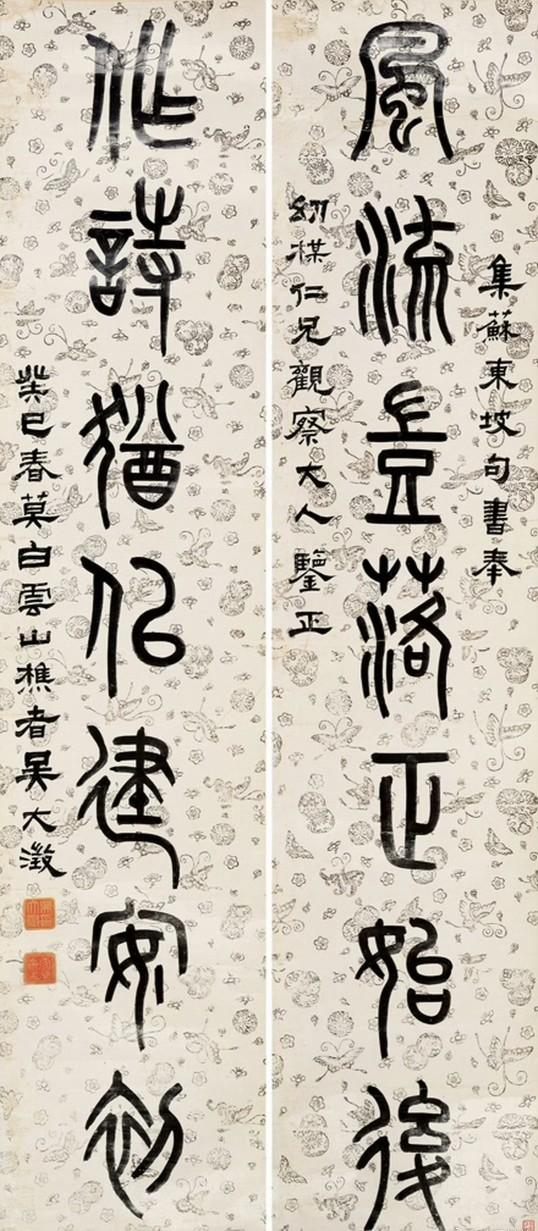 集蘇東坡句書奉
風流豈落正始後
幼楳仁兄觀察大人鑒正
作詩猶似建安初
癸巳春莫白雲山樵者吳大澂